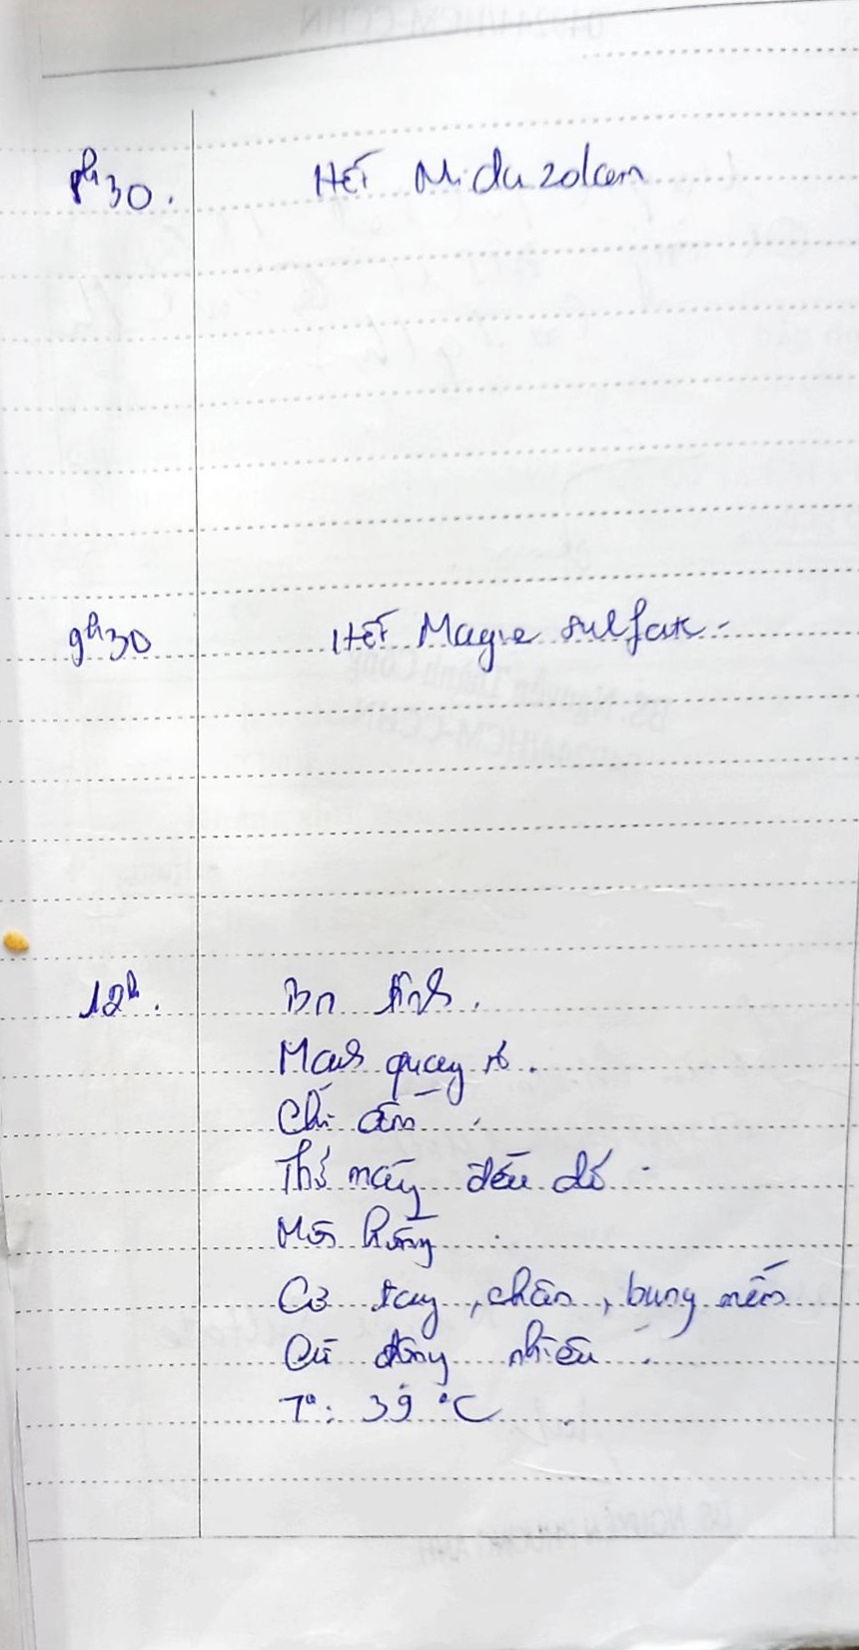 8h30. Hết Midazolam
9h30 Hết Magie sulfat -
12h. Bn tỉnh.
Mạch quay rõ.
Chi ấm.
Thở máy đều dễ.
Môi hồng.
Cơ tay, chân, bụng mềm
Cử động nhiều.
T°: 39 °C.